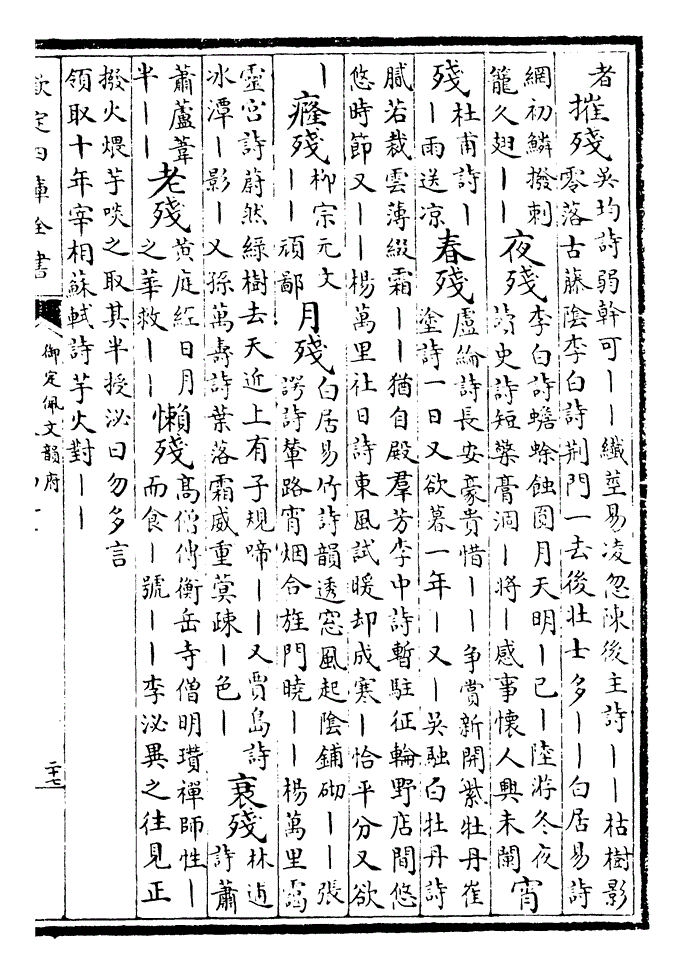 者摧殘吳均詩弱幹可丨丨纖莖易凌忽陳後主詩丨丨枯樹影零落古藤陰李白詩荆門一去後壯士多丨丨白居易詩
網初鱗撥刺籠久翅丨丨夜殘李白詩蟾蜍蝕圓月天明丨已丨陸游冬夜讀史詩短檠膏涸丨將丨感事懷人興未闌宵
殘杜甫詩丨丨雨送凉春殘盧綸詩長安豪貴惜丨丨爭賞新開紫牡丹崔塗詩一日又欲暮一年丨又丨吳融白牡丹詩
膩若裁雲薄綴霜丨丨猶自殿羣芳李中詩暫駐征輪野店間悠
悠時節又丨丨楊萬里社日詩東風試暖却成寒丨恰平分又欲
丨癃殘柳宗元文丨丨頑鄙月殘白居易竹詩韻透窓風起陰鋪砌丨丨張諤詩輦路宵烟合旌門曉丨丨楊萬里謁
靈宫詩蔚然緑樹去天近上有子規啼丨丨又賈島詩冰潭丨影丨又孫萬壽詩葉落霜威重蓂疎丨色丨衰殘林逋詩蕭
蕭蘆葦半丨丨老殘黄庭紅日月之華救丨丨懶殘高僧傳衡岳寺僧明瓚禪師性丨而食丨號丨丨李泌異之往見正
撥火煨芋啖之取其半授泌曰勿多言
領取十年宰相蘇軾詩芋火對丨丨
欽定四庫全書
御定佩文韻府
二十七